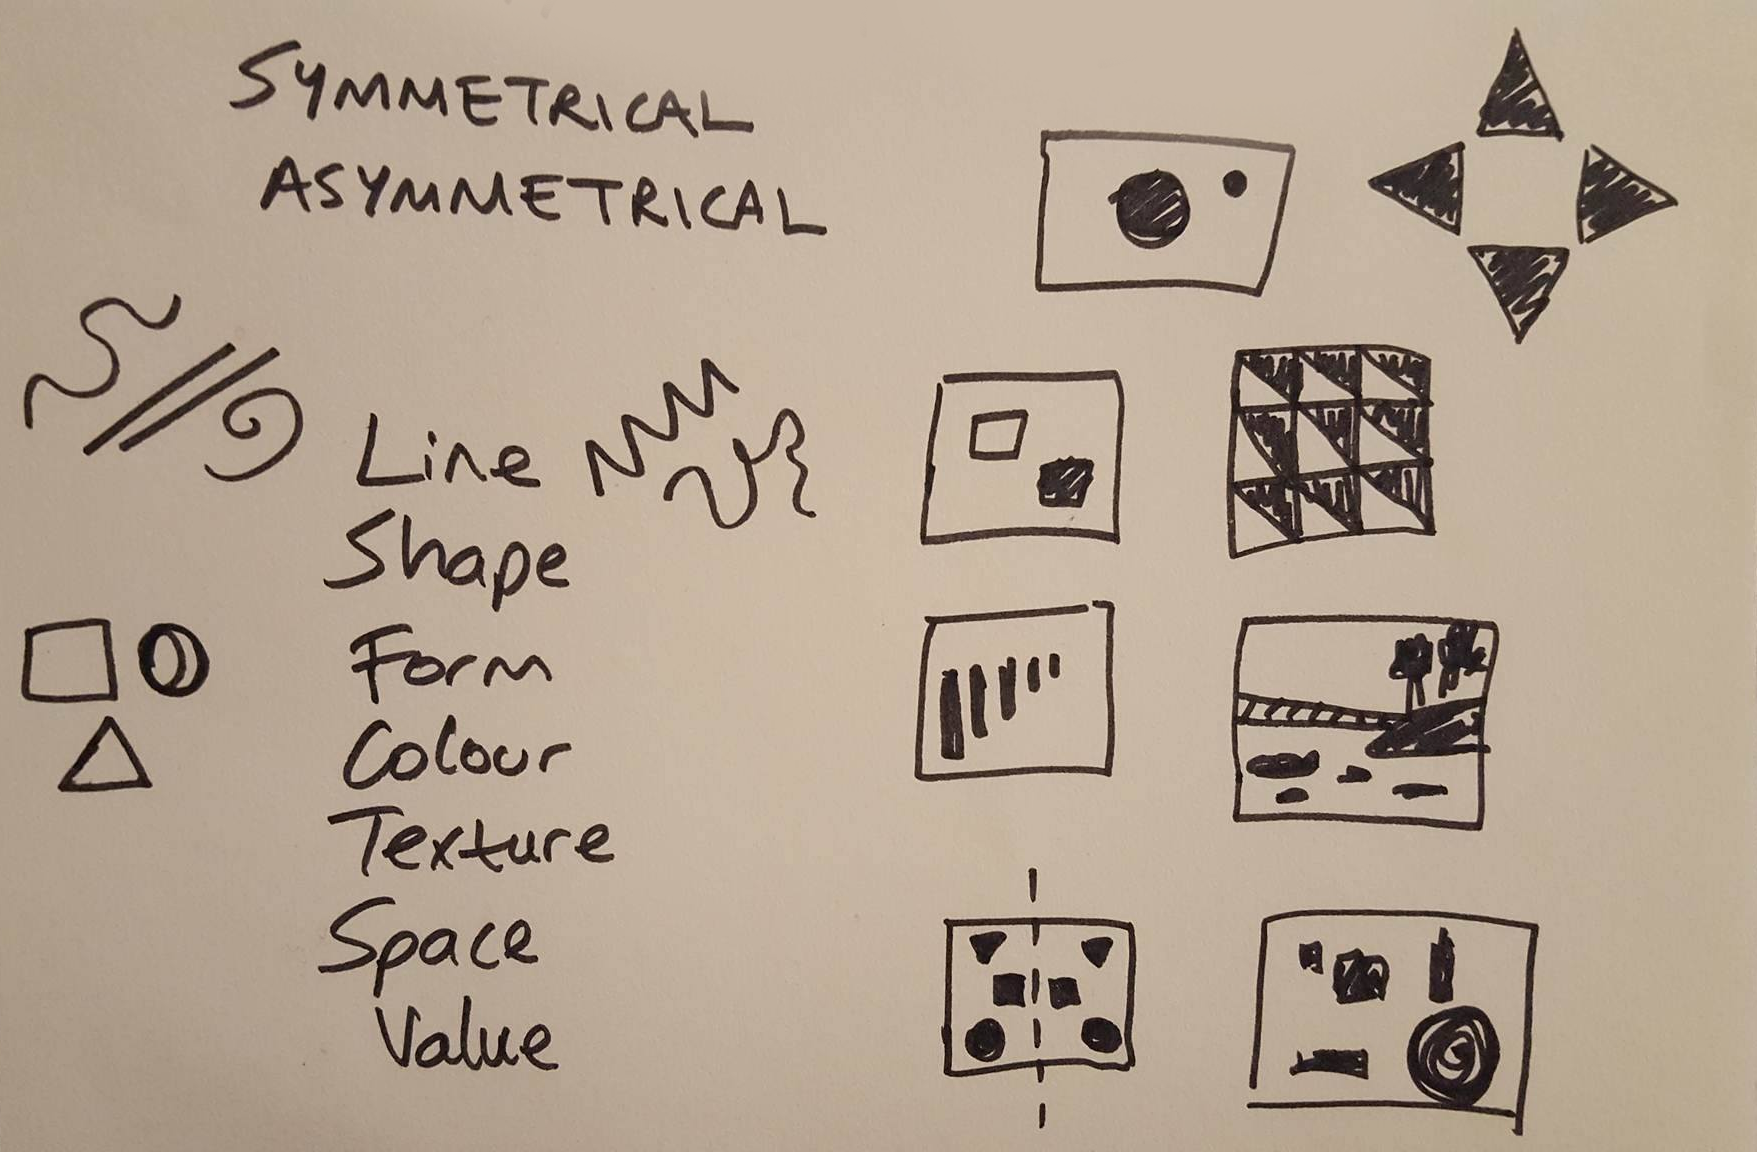 SYMMETRICAL
ASYMMETRICAL
Line
Shape
Form
Colour
Texture
Space
Value